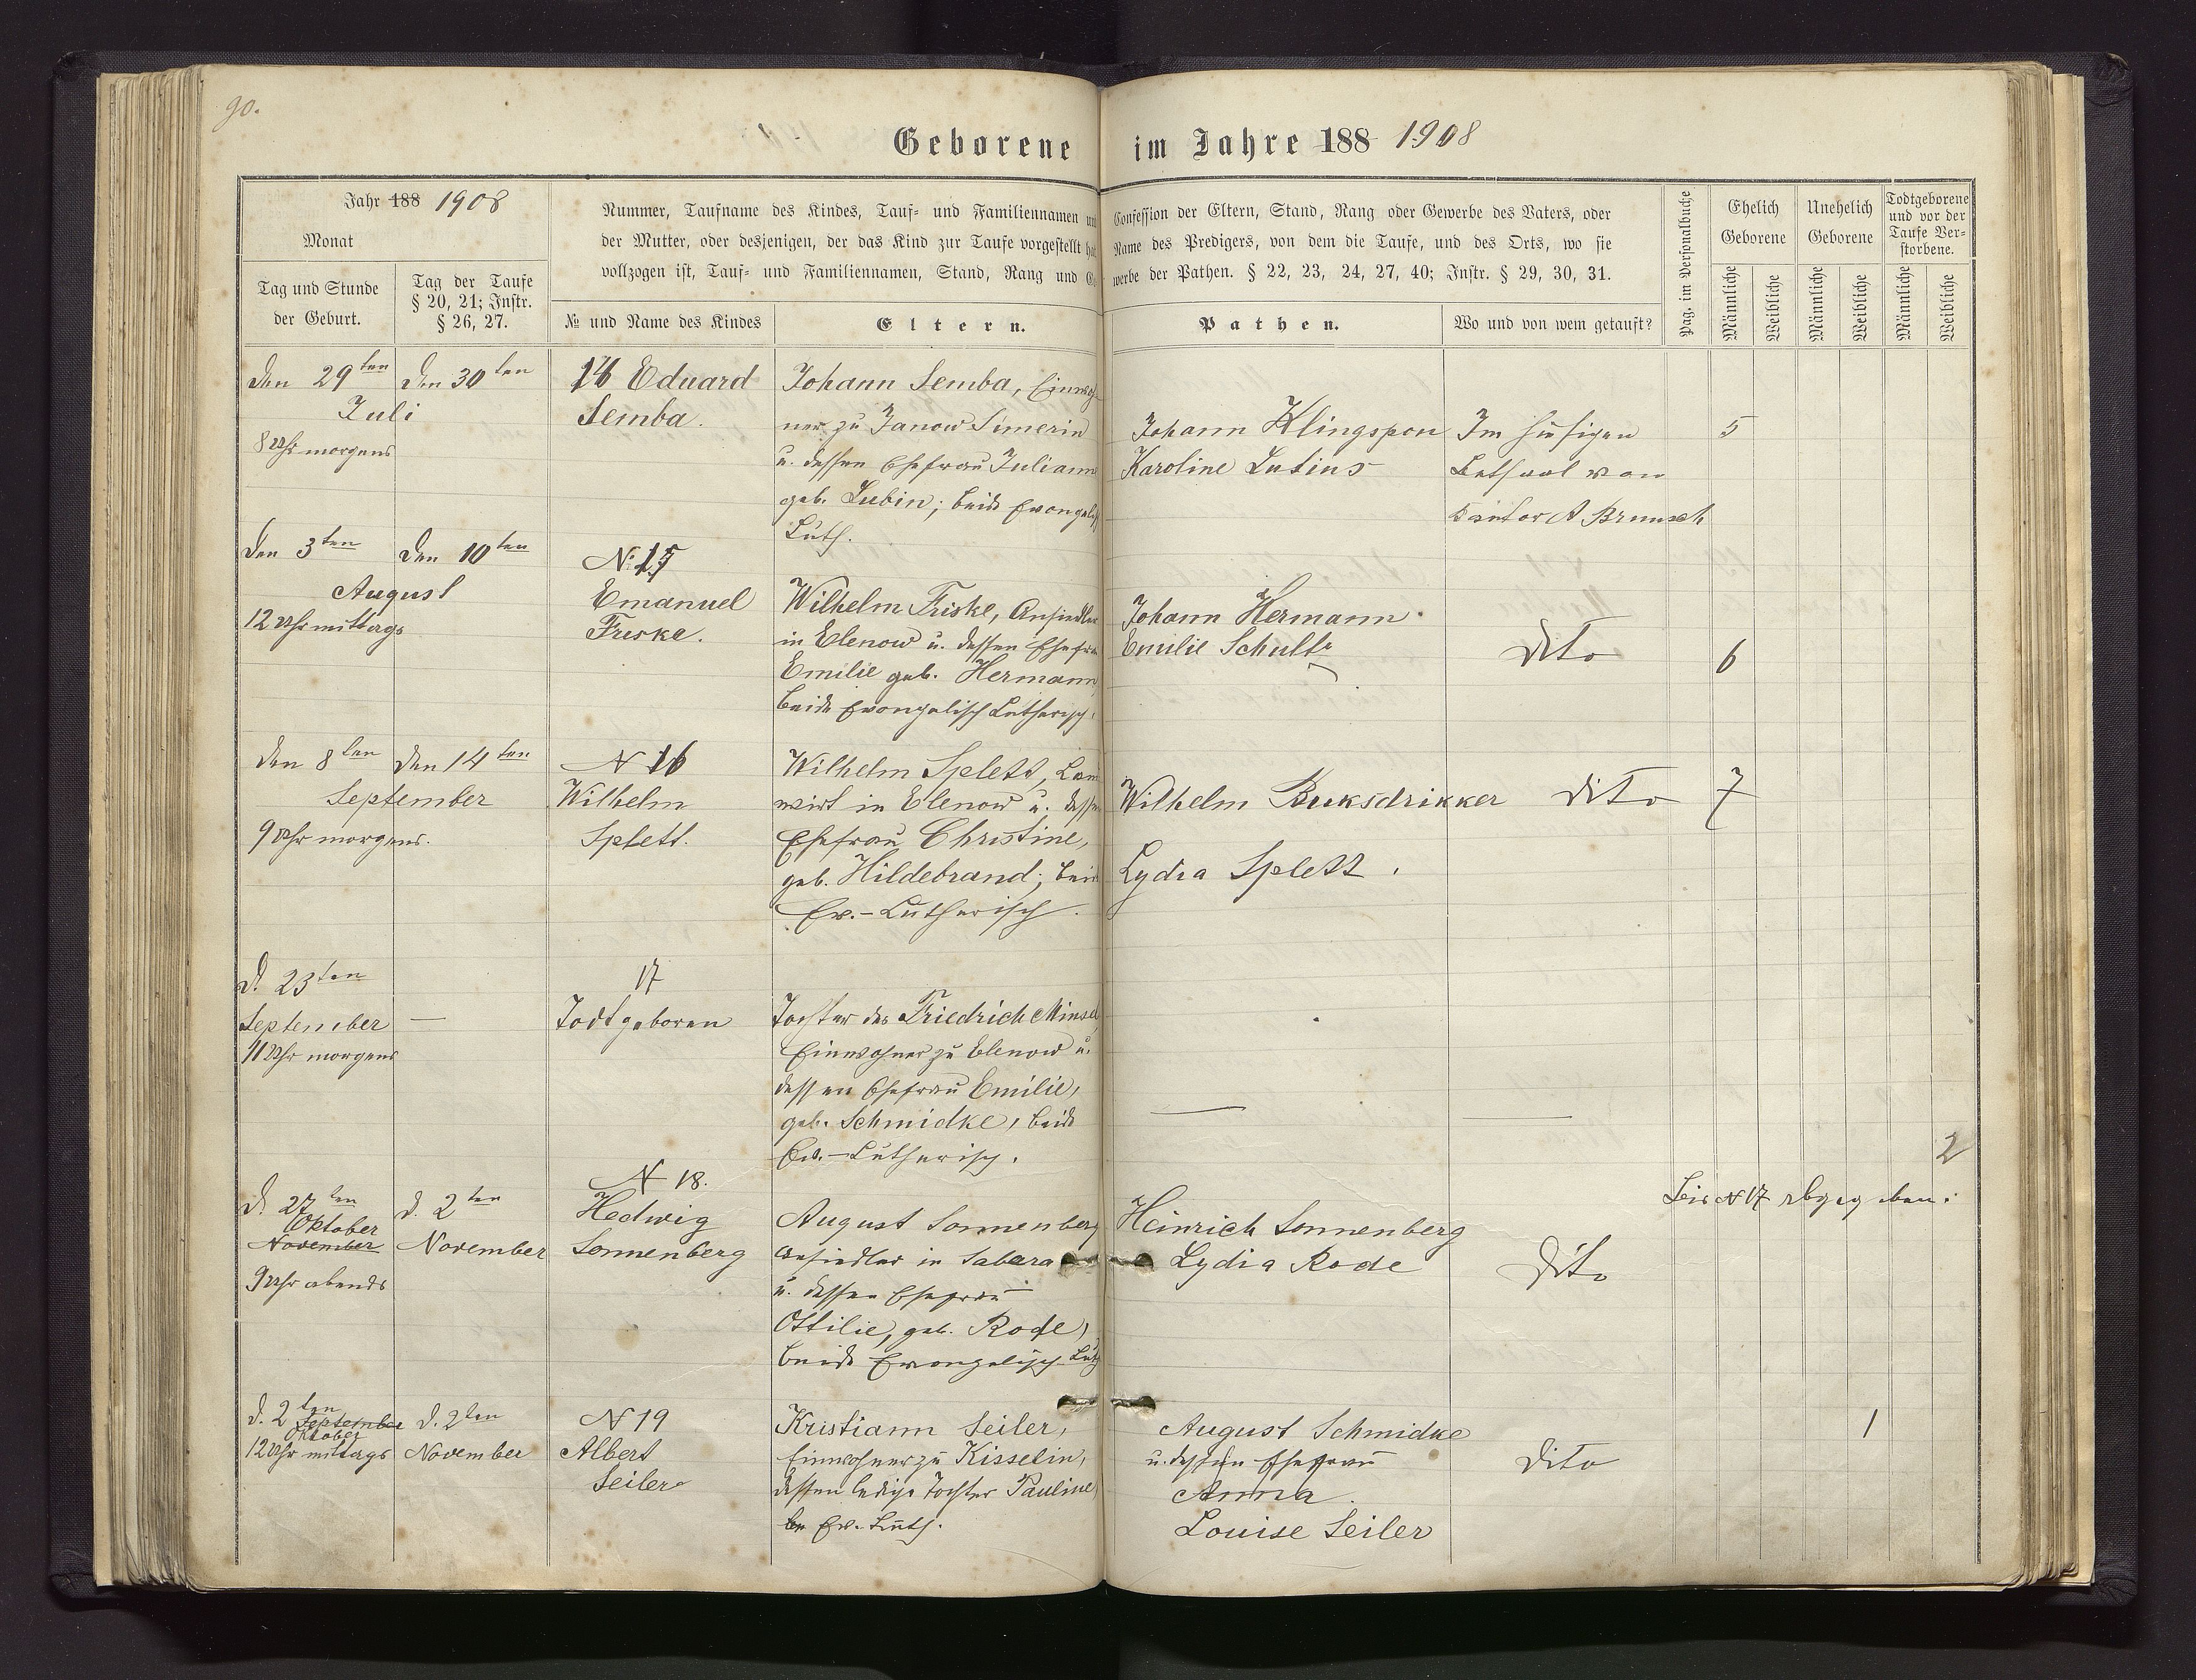 90.
Geborene im Jahre 188 1908
Jahr 188 1908
Monat
Tag und Stunde
der Geburt.
Tag der Taufe
§ 20, 21; Instr.
§ 26, 27.
Nummer, Taufname des Kindes, Tauf- und Familiennamen und
der Mutter, oder desjenigen, der das Kind zur Taufe vorgestellt hat
vollzogen ist, Tauf- und Familiennamen, Stand, Rang und Ge
№ und Name des Kindes
Eltern.
Confession der Eltern, Stand, Rang oder Gewerbe des Vaters, oder
Name des Predigers, von dem die Taufe, und des Orts, wo sie
werbe der Pathen. § 22, 23, 24, 27, 40; Instr. § 29, 30, 31.
Pathen.
Wo und von wem getauft?
Pag. im Personalbuche
Ehelich
Geborene
Unehelich
Geborene
Todtgeborene
und vor der
Taufe Ver-
storbene.
Männliche
Weibliche
Männliche
Weibliche
Männliche
Weibliche
Den 29ten
Juli
8 Uhr morgens
Den 30ten
14 Eduard
Semba.
Johann Semba, Einwoh-
ner zu Janow Simerin
u. dessen Ehefrau Juliann
geb. Lubin; beide Evangelisch
Luth.
Johann Klingspon
Karoline Lutins
Im hiesigen
Bethaul von
Kantor A Brunsch
5
Den 3ten
August
12 Uhr mittags
Den 10ten
N: 15
Emanuel
Friske.
Wilhelm Friske, Ansiedler
in Elenow u. dessen Ehefrau
Emilie geb. Hermann
beide Evangelisch Lutherisch.
Johann Hermann.
Emilie Schultz
Dito
6
Den 8ten
September
9 Uhr morgens.
Den 14ten
N 16
Wilhelm
Splett.
Wilhelm Splett, Land
wirt in Elenow u. dessen
Ehefrau Christine,
geb. Hildebrand; beide
Ev.-Lutherisch.
Wilhelm Buksdrikker
Lydia Splett.
Dito
7
D. 23ten
September
11 Uhr morgens
—
17
Todtgeboren
Tochter des Friedrich Minsel
Einwohner zu Elenow u.
dessen Ehefrau Emilie,
geb. Schmidke, beide
Ev.-Lutherisch.
—
—
2
Bis N 17 abgegeben.
D. 27ten
Oktober
November
9 Uhr abends
D. 2ten
November
N 18.
Hedwig
Sonnenberg
August Sonnenberg
Ansiedler in Sabara
u. dessen Ehefrau
Ottilie, geb. Rode,
beide Evangelisch Luth
Heinrich Sonnenberg
Lydia Rode
Dito
D. 2ten
September
Oktober
12 Uhr mittags
D. 2ten
November
N 19
Albert
Seiler
Kristiann Seiler,
Einwohner zu Kisselin,
dessen ledige Tochter Pauline
be Ev. Luth.
August Schmidke
u. dessen Ehefrau
Anna.
Louise Seiler
Dito
1